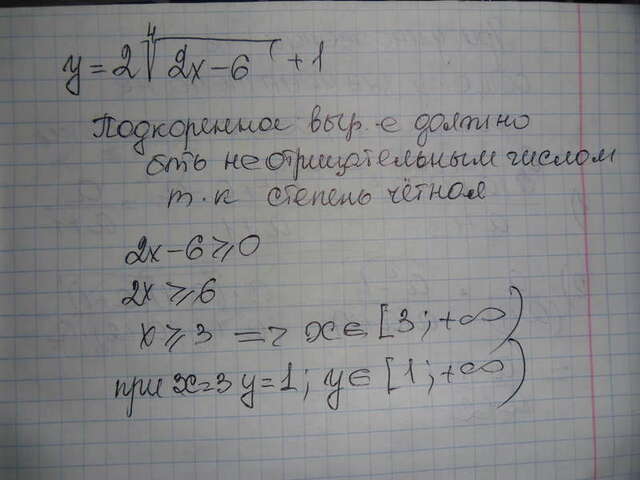 y = 2 ∜(2x-6) + 1
Подкоренное выр-е должно
быть неотрицательным числом
т.к степень чётная
2x-6⩾0
2x⩾6
x⩾3 => x∈[3;+∞)
при x=3 y=1; y∈[1;+∞)